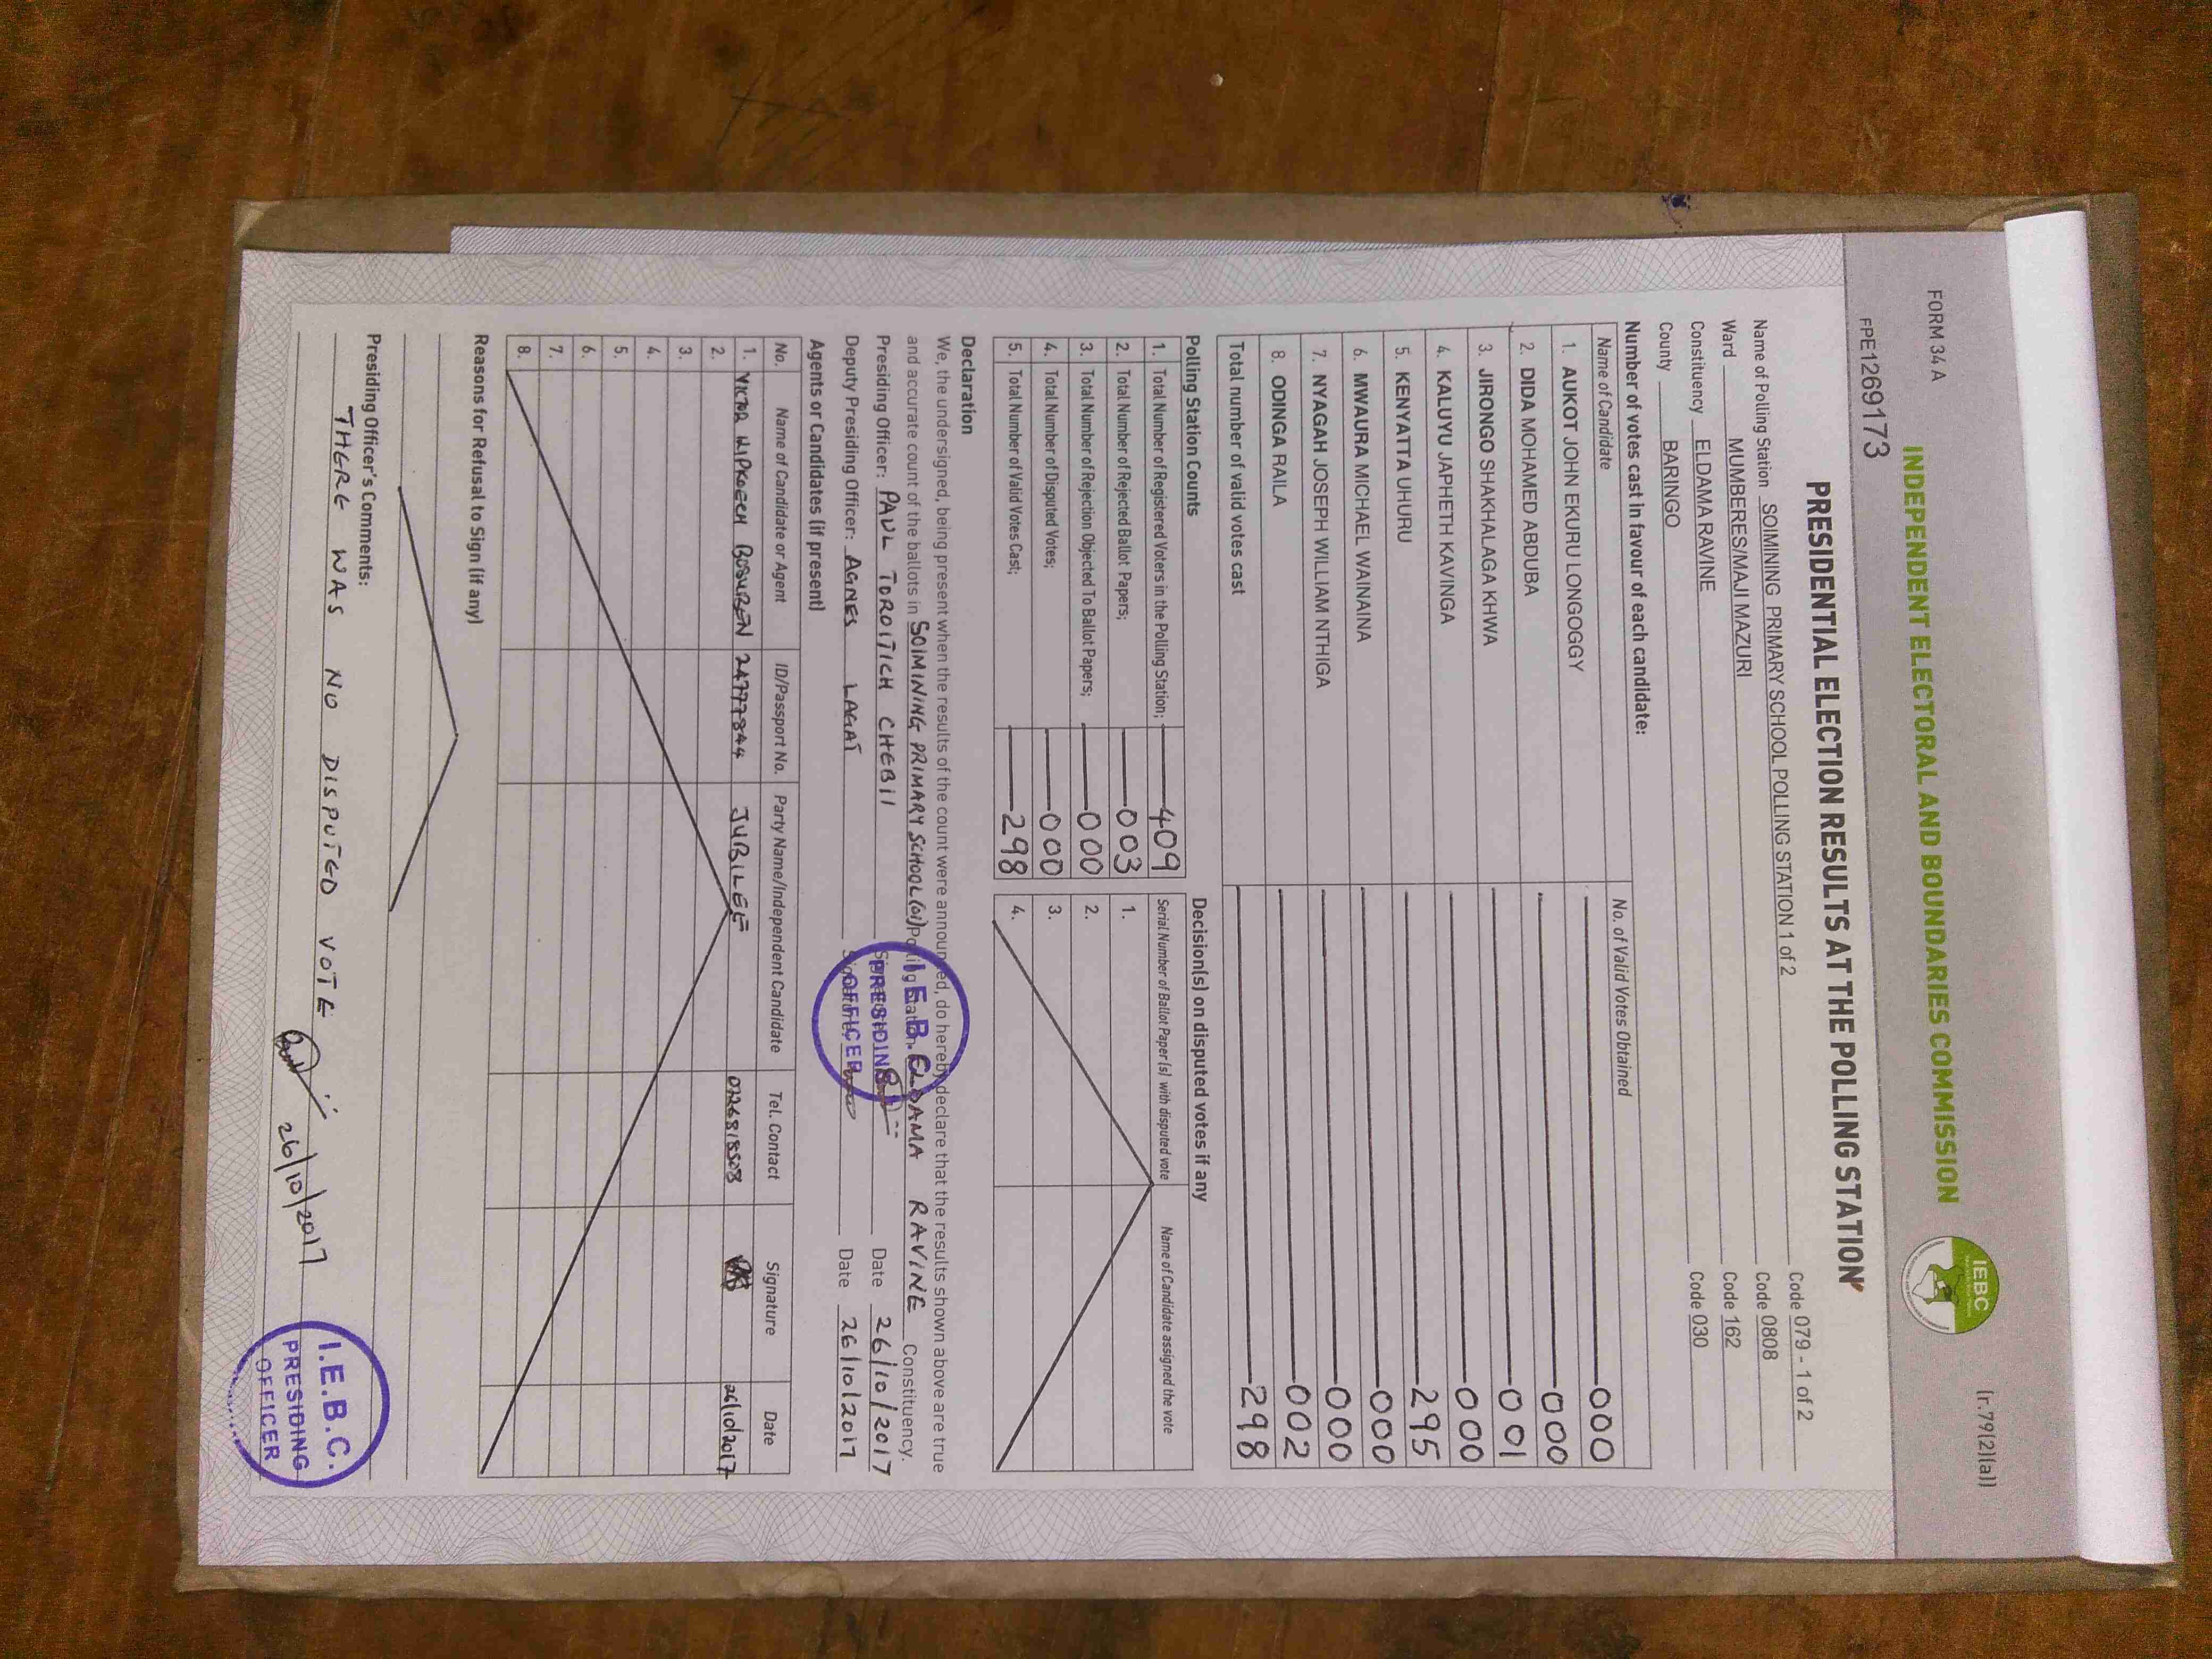 FORM 34A
(r.79(2)(a))
INDEPENDENT ELECTORAL AND BOUNDARIES COMMISSION
IEBC
FPE1269173
PRESIDENTIAL ELECTION RESULTS AT THE POLLING STATION
Name of Polling Station SOIMINING PRIMARY SCHOOL POLLING STATION 1 of 2 Code 079 - 1 of 2
Ward MUMBERES/MAJI MAZURI Code 0808
Constituency ELDAMA RAVINE Code 162
County BARINGO Code 030
Number of votes cast in favour of each candidate:
Name of Candidate No. of Valid Votes Obtained
1. AUKOT JOHN EKURU LONGOGGY 000
2. DIDA MOHAMED ABDUBA 000
3. JIRONGO SHAKHALAGA KHWA 001
4. KALUYU JAPHETH KAVINGA 000
5. KENYATTA UHURU 295
6. MWAURA MICHAEL WAINAINA 000
7. NYAGAH JOSEPH WILLIAM NTHIGA 000
8. ODINGA RAILA 002
Total number of valid votes cast 298
Polling Station Counts
1. Total Number of Registered Voters in the Polling Station; 409
2. Total Number of Rejected Ballot Papers; 003
3. Total Number of Rejection Objected To Ballot Papers; 000
4. Total Number of Disputed Votes; 000
5. Total Number of Valid Votes Cast; 298
Decision(s) on disputed votes if any
Serial Number of Ballot Paper(s) with disputed vote Name of Candidate assigned the vote
1.
2.
3.
4.
Declaration
We, the undersigned, being present when the results of the count were announced, do hereby declare that the results shown above are true
and accurate count of the ballots in SOIMINING PRIMARY SCHOOL (01) Polling Station, ELDAMA RAVINE Constituency.
Presiding Officer: PAUL TOROITICH CHEBII Date 26/10/2017
Deputy Presiding Officer: AGNES LAGAT Signature Date 26/10/2017
I.E.B.C.
PRESIDING
OFFICER
Agents or Candidates (if present)
No. Name of Candidate or Agent ID/Passport No. Party Name/Independent Candidate Tel. Contact Signature Date
1. VICTOR KIPKOECH BOSUREN 24777344 JUBILEE 0726818508 26/10/2017
2.
3.
4.
5.
6.
7.
8.
Reasons for Refusal to Sign (if any)
Presiding Officer's Comments:
THERE WAS NO DISPUTED VOTE
26/10/2017
I.E.B.C.
PRESIDING
OFFICER